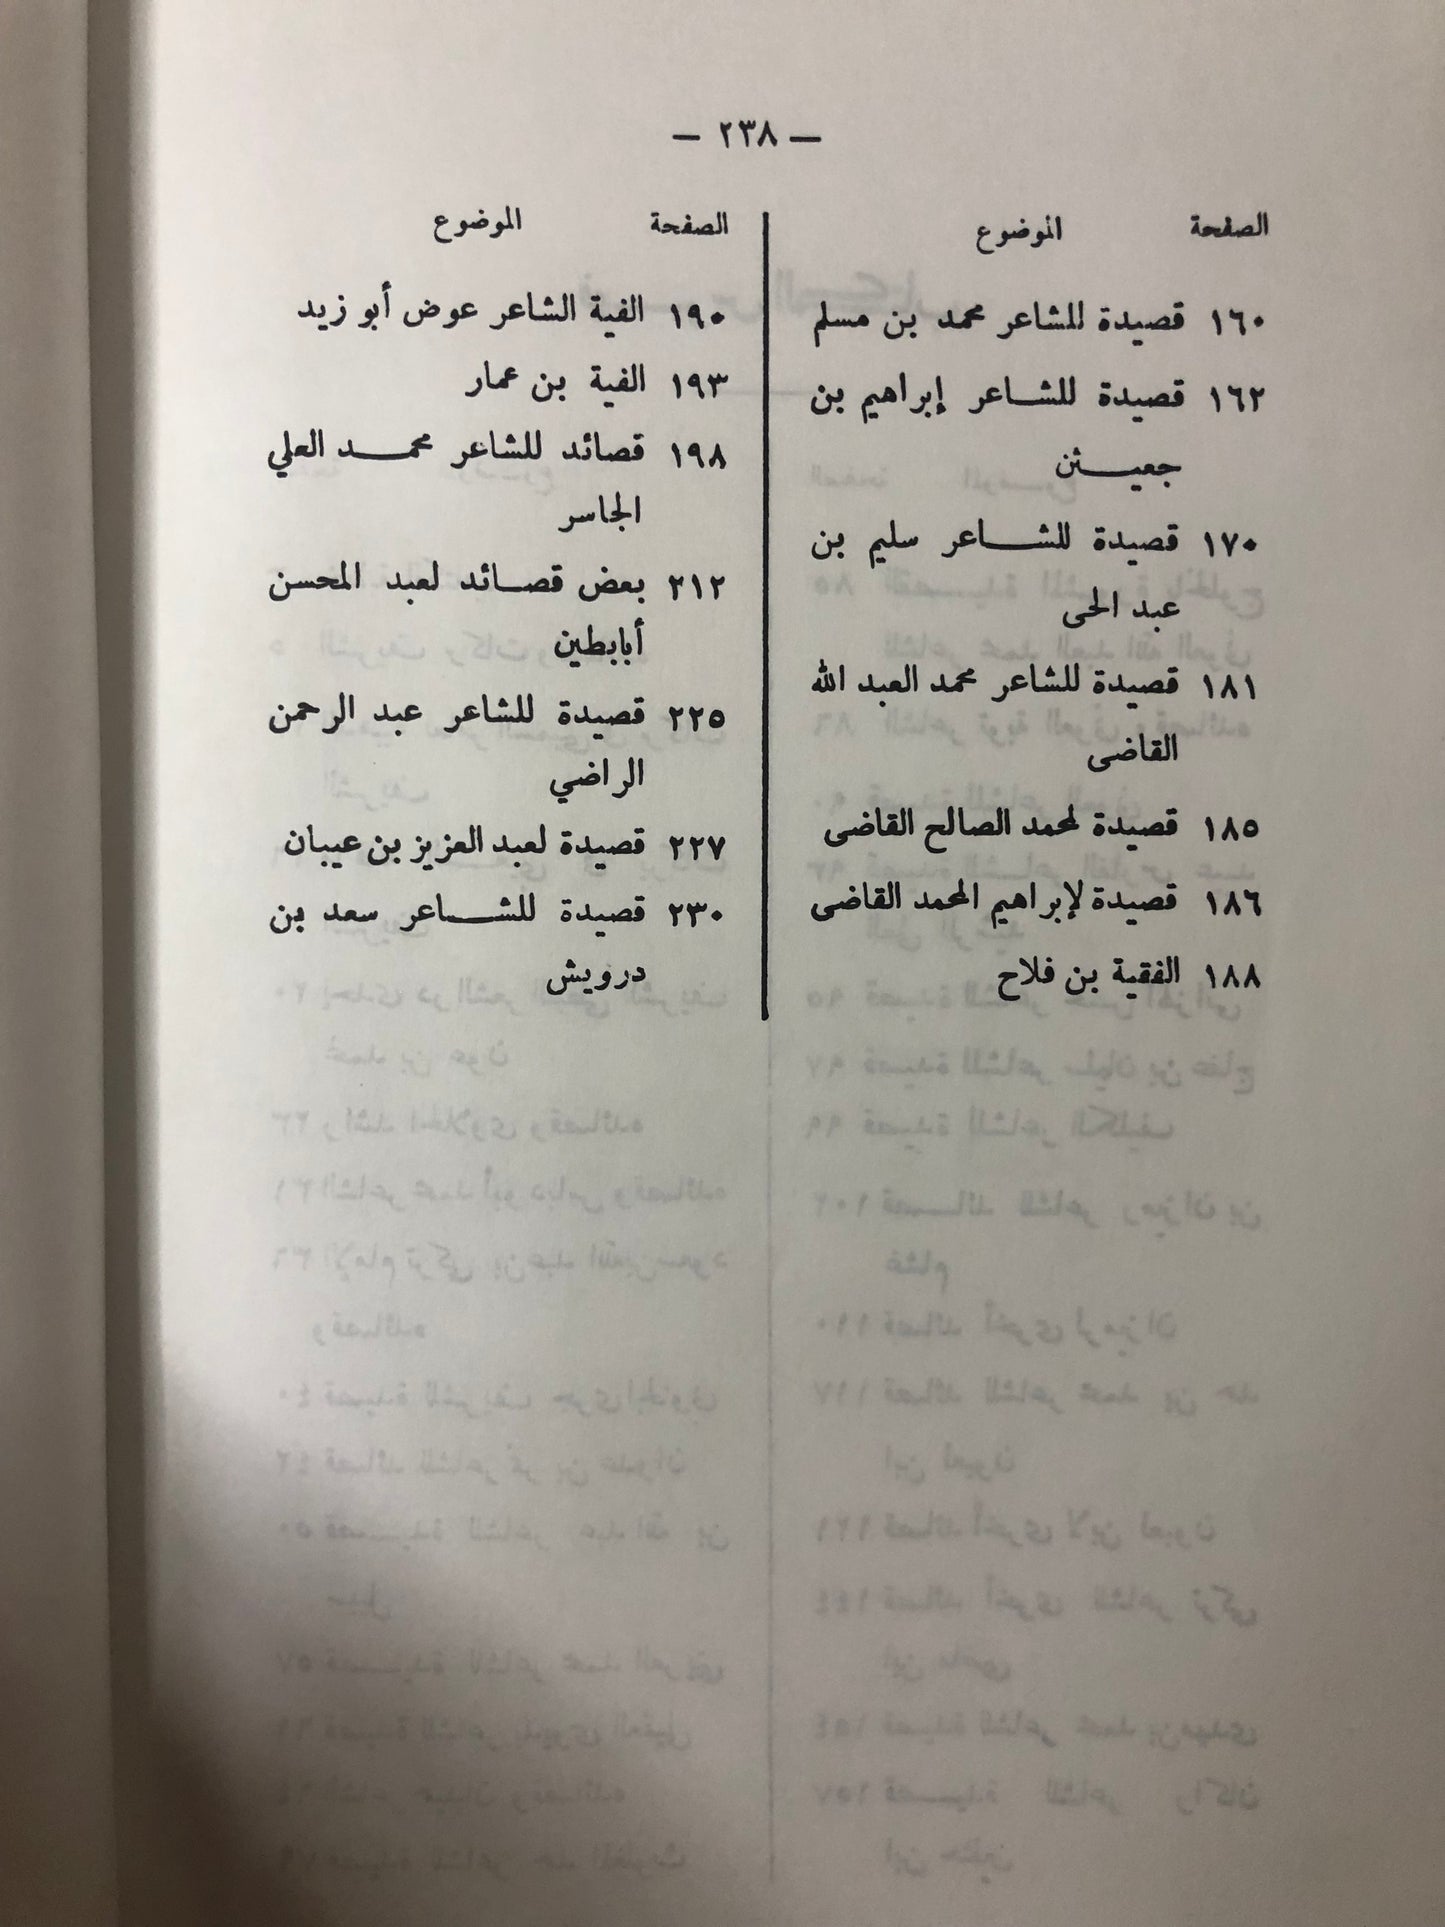 — ٢٣٨ —
الصفحة الموضوع
١٦٠ قصيدة للشاعر محمد بن مسلم
١٦٢ قصيدة للشاعر إبراهيم بن
جعيثن
١٧٠ قصيدة للشاعر سليم بن
عبد الحى
١٨١ قصيدة للشاعر محمد العبد الله
القاضى
١٨٥ قصيدة لمحمد الصالح القاضى
١٨٦ قصيدة لإبراهيم المحمد القاضى
١٨٨ الفقية بن فلاح
الصفحة الموضوع
١٩٠ الفية الشاعر عوض أبو زيد
١٩٣ الفية بن عمار
١٩٨ قصائد للشاعر محمد العلي
الجاسر
٢١٢ بعض قصائد لعبد المحسن
أبابطين
٢٢٥ قصيدة للشاعر عبد الرحمن
الراضي
٢٢٧ قصيدة لعبد العزيز بن عيبان
٢٣٠ قصيدة للشاعر سعد بن
درويش